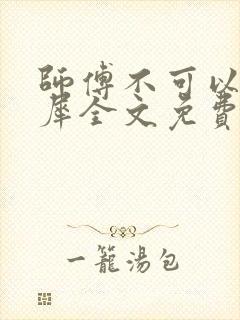 師傅不可以
犀全文免費
一籠湯包